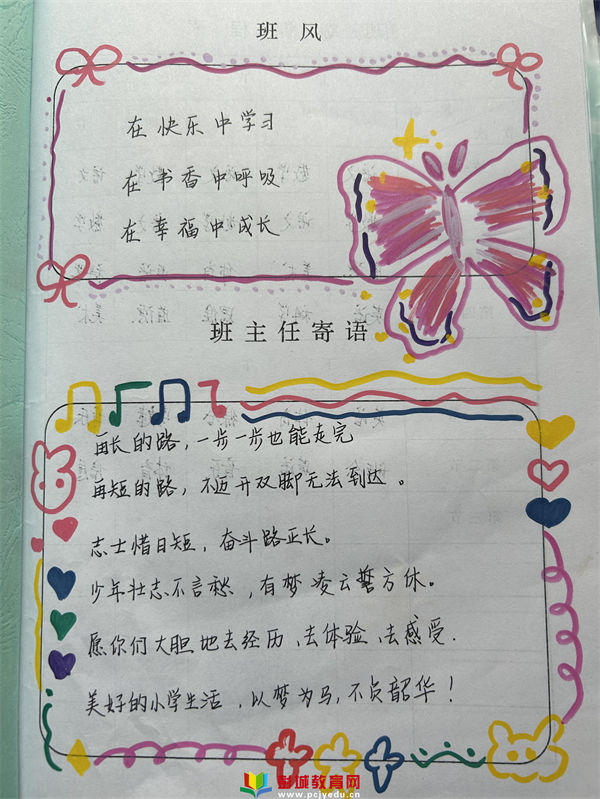 班 风
在快乐中学习
在书香中呼吸
在幸福中成长
班主任寄语
再长的路，一步一步也能走完
再短的路，不迈开双脚无法到达。
志士惜日短，奋斗路正长。
少年壮志不言愁，有梦凌云誓方休。
愿你们大胆地去经历、去体验、去感受.
美好的小学生活，以梦为马，不负韶华！
彭城教育网
www.pcjyedu.cn